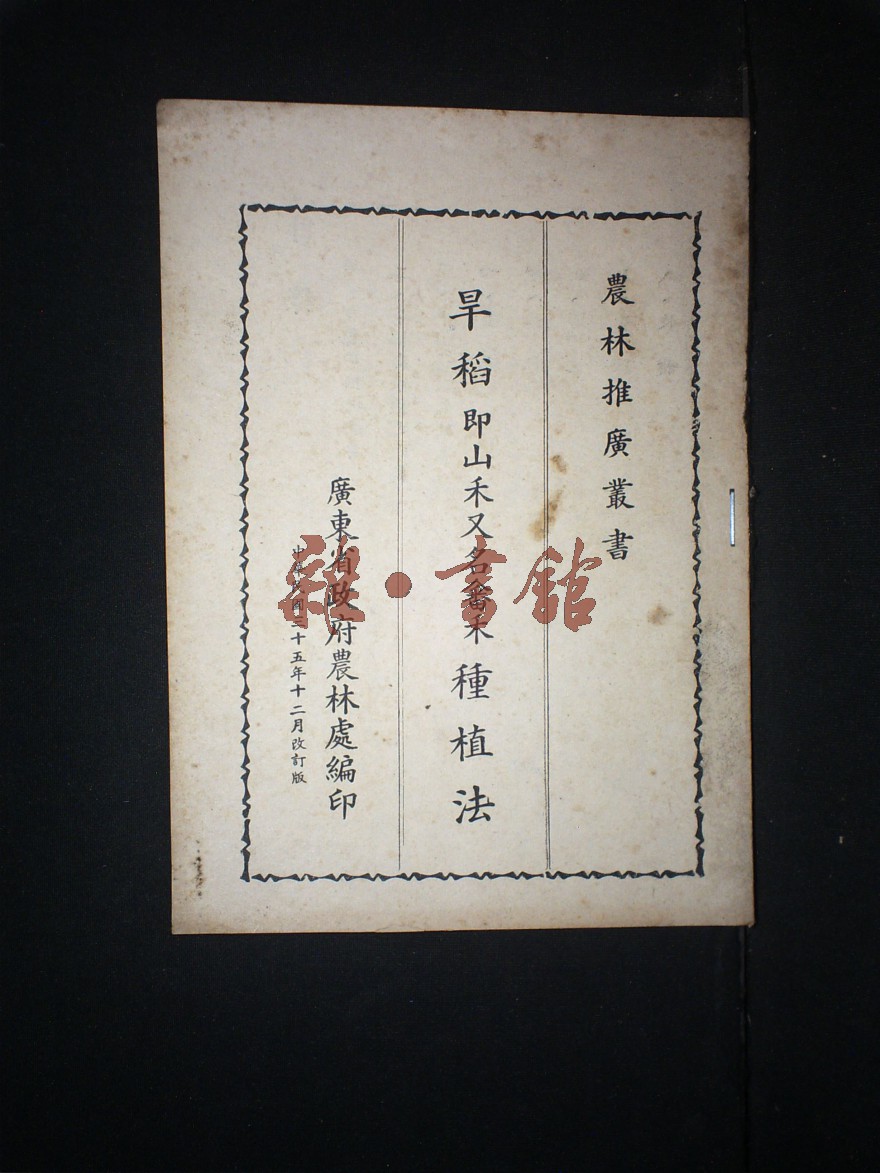 農林推廣叢書
旱稻即山禾又名畬禾種植法
廣東省政府農林處編印
中華民國三十五年十二月改訂版
雜·書館